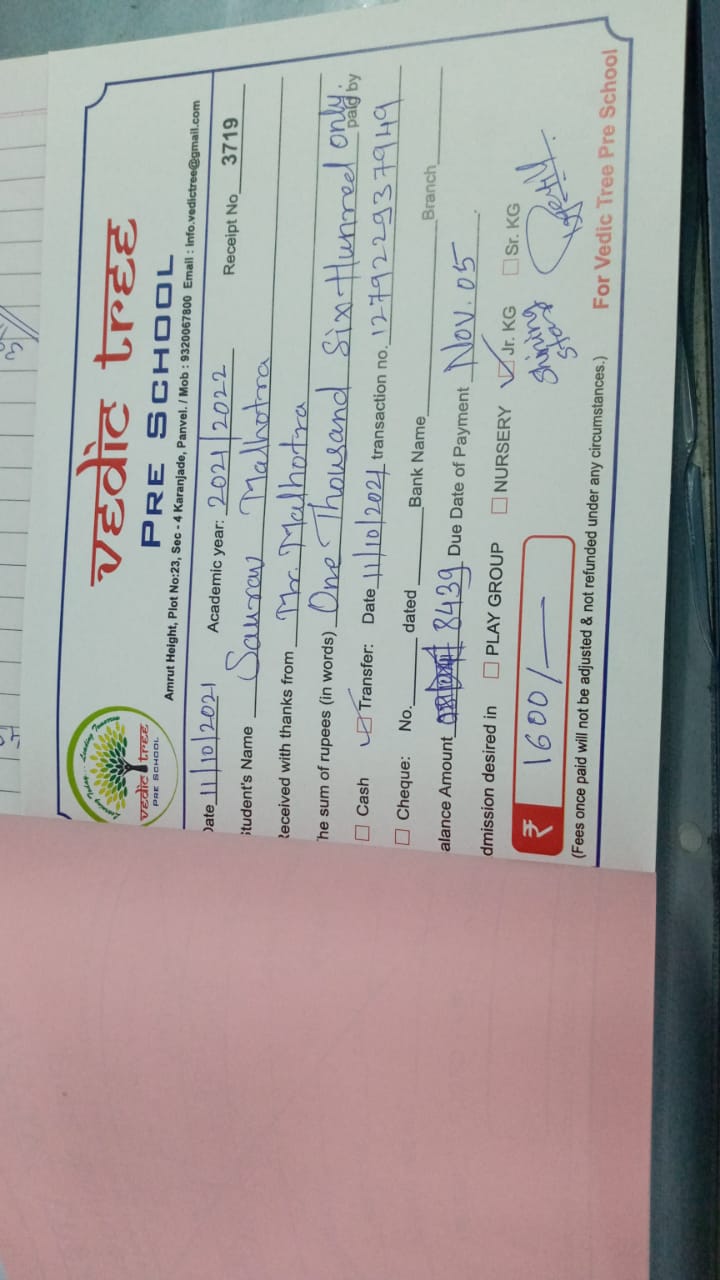 vedic tree
PRE SCHOOL
vedic tree
PRE SCHOOL
Amrut Height, Plot No:23, Sec - 4 Karanjade, Panvel. / Mob : 9320067800 Email : Info.vedictree@gmail.com
Date 11/10/2021 Academic year: 2021/2022 Receipt No 3719
Student's Name Saurav Malhotra
Received with thanks from Mr. Malhotra
The sum of rupees (in words) One Thousand Six Hunred only. paid by
Cash Transfer: Date 11/10/2021 transaction no. 127922937949
Cheque: No. dated Bank Name Branch
alance Amount 8439 Due Date of Payment Nov. 05
dmission desired in PLAY GROUP NURSERY Jr. KG Sr. KG
Shining
Star
₹ 1600/—
(Fees once paid will not be adjusted & not refunded under any circumstances.)
For Vedic Tree Pre School